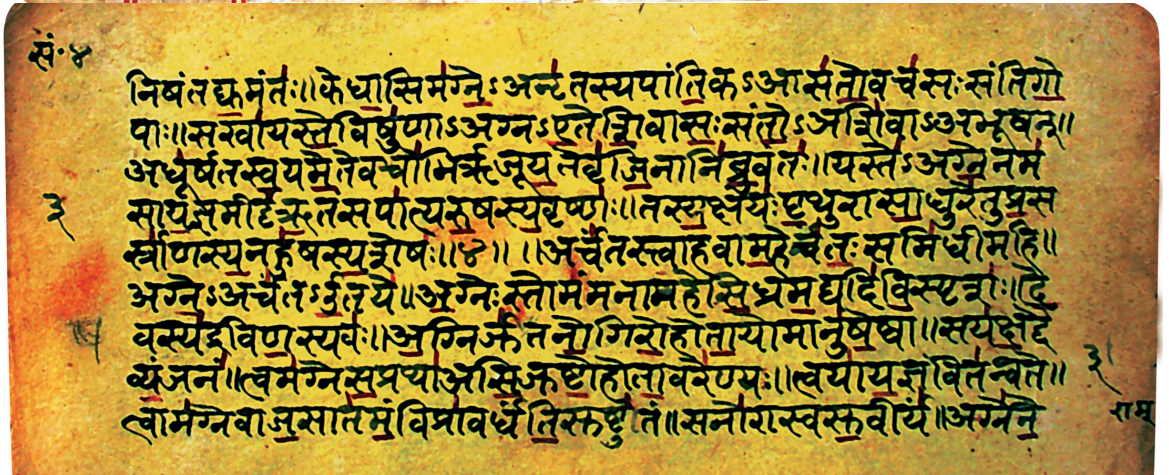 सं॰४
निषंतद्युमंतः॥केधासिमग्नेऽअनृतस्यपांतिकऽआसतोवचसःसंतिगो
पाः॥सखायस्तेविषुणाऽअग्नऽएतेशिवासःसंतोऽअशिवाऽअभूवन्॥
अधूर्षतस्वयमेतेवचोभिर्ऋजूयतेवृजिनानिब्रुवंतः॥यस्तेऽअग्नेनम
३
सायज्ञमीट्टऋतंसपात्यरुषस्यवृष्णः॥तस्यक्षयःपृथुरासाधुरेतुप्रस
र्स्राणस्यनहुषस्यशेषः॥४॥ ॥अर्चंतस्त्वाहवामहेर्चंतःसमिधीमहि॥
अग्नेऽअर्चंतऽऊतये॥अग्नेःस्तोमंमनामहेसिध्रमद्यदिविस्पृशः॥दे
वस्यद्रविणस्यवः॥अग्निर्जुषतनोगिरोहोतायोमानुषेष्वा॥सयक्षद्दै
व्यंजनं॥त्वमग्नेसप्रथाअसिजुष्टोहोतावरेण्यः॥त्वयायज्ञंवितन्वते॥
३
त्वामग्नेवाजसातमंविप्रावर्धंतिसुष्टुतं॥सनोरास्वसुवीर्यं॥अग्नेने
राम